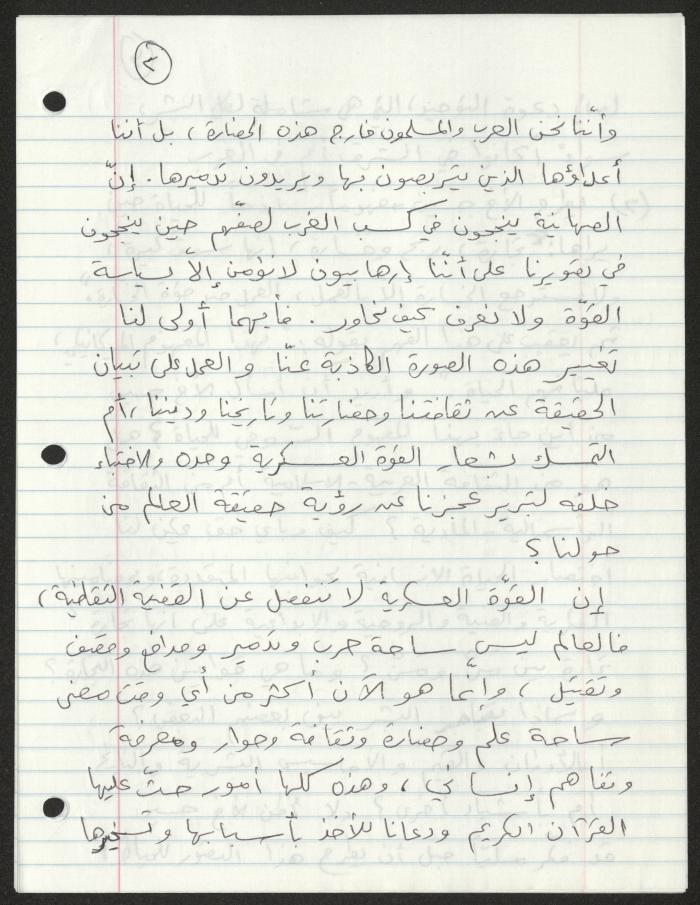 ٢
وأنّنا نحن العرب والمسلمون خارج هذه الحضارة ، بل أننا
أعداؤها الذين يتربصون بها ويريدون تدميرها . إنّ
الصهاينة ينجحون في كسب الغرب لصفّهم حين ينجحون
في تصويرنا على أنّنا إرهابيون لا نؤمن إلاّ بسياسة
القوّة ولا نعرف كيف نحاور . فأيهما أولى لنا
تغيير هذه الصورة الكاذبة عنّا والعمل على تبيان
الحقيقة عن ثقافتنا وحضارتنا وتاريخنا وديننا ، أم
التمسك بشعار القوة العسكرية وحده والاختباء
خلفه لتبرير عجزنا عن رؤية حقيقة العالم من
حولنا ؟
إن القوّة العسكرية لا تنفصل عن القضية الثقافية ،
فالعالم ليس ساحة حرب وتدمير ومدافع وقصف
وتقتيل ، وإنّما هو الآن أكثر من أي وقت مضى
ساحة علم وحضارة وثقافة وحوار ومعرفة
وتفاهم إنساني ، وهذه كلها أمور حثّ عليها
القرآن الكريم ودعانا للأخذ بأسبابها وتسخيرها